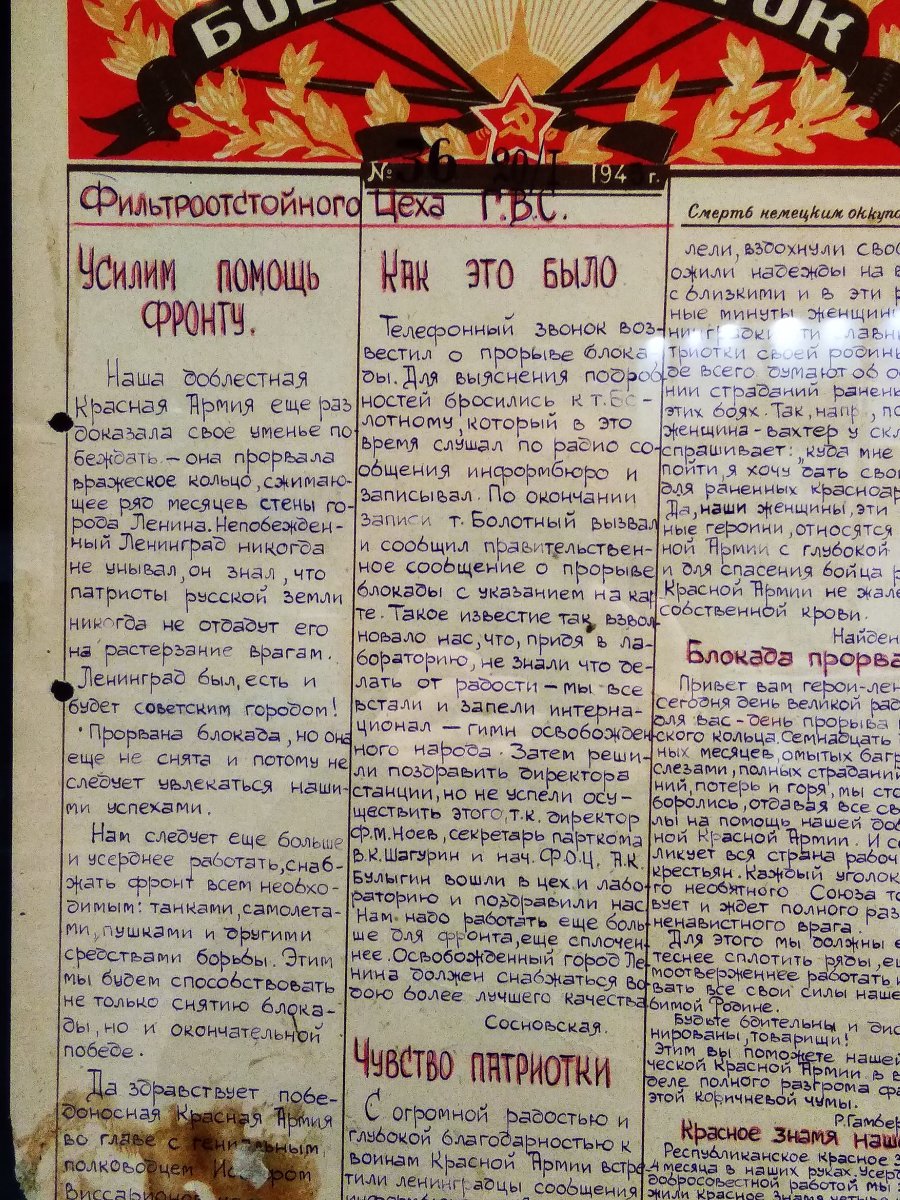 БОЕ
ОК
№ 36 20/I 194 г.
Фильтроотстойного Цеха Г.В.С.
Смерть немецким оккупа
Усилим помощь
фронту.
Наша доблестная
Красная Армия еще раз
доказала свое уменье по-
беждать – она прорвала
вражеское кольцо, сжимаю-
щее ряд месяцев стены го-
рода Ленина. Непобежден-
ный Ленинград никогда
не унывал, он знал, что
патриоты русской земли
никогда не отдадут его
на растерзание врагам.
Ленинград был, есть и
будет советским городом!
Прорвана блокада, но она
еще не снята и потому не
следует увлекаться наши-
ми успехами.
Нам следует еще больше
и усерднее работать, снаб-
жать фронт всем необхо-
димым: танками, самолета-
ми, пушками и другими
средствами борьбы. Этим
мы будем способствовать
не только снятию блока-
ды, но и окончательной
победе.
Да здравствует побе-
доносная Красная Армия
во главе с гениальным
полководцем
Виссарионо
Как это было
Телефонный звонок воз-
вестил о прорыве блока-
ды. Для выяснения подроб
ностей бросились к т. Бо-
лотному, который в это
время слушал по радио со-
общения информбюро и
записывал. По окончании
записи т. Болотный вызвал
и сообщил правительствен-
ное сообщение о прорыве
блокады с указанием на кар
те. Такое известие так взвол
новало нас, что, придя в ла-
бораторию, не знали что де-
лать от радости – мы все
встали и запели интерна-
ционал – гимн освобожден
ного народа. Затем реши-
ли поздравить директора
станции, но не успели осу-
ществить этого, т.к. директор
Ф.М. Ноев, секретарь парткома
В.К. Шагурин и нач. Ф.О.Ц. А.К.
Булыгин вошли в цех и лабо-
раторию и поздравили нас.
Нам надо работать еще боль-
ше для фронта, еще сплочен-
нее. Освобожденный город Ле-
нина должен снабжаться во-
дою более лучшего качества
Сосновская.
Чувство патриотки
С огромной радостью и
глубокой благодарностью к
воинам Красной Армии встре-
тили ленинградцы сообщения
лели, вздохнули своб
ожили надежды на в
с близкими и в эти р
ные минуты женщины
триотки своей родины
де всего думают об о
нии страданий ранены
этих боях. Так, напр., по
женщина-вахтер у скл
спрашивает: „куда мне
пойти, я хочу дать сво
для раненных красноар
Да, наши женщины, эти
ные героини, относятся
ной Армии с глубокой
и для спасения бойца р
Красной Армии не жале
собственной крови.
Найден
Блокада прорва
Привет вам герои-лен
Сегодня день великой рад
для вас – день прорыва
ского кольца. Семнадцать
ных месяцев, омытых багр
слезами, полных страданий
ний, потерь и горя, мы сто
боролись, отдавая все св
лы на помощь нашей доб
ной Красной Армии. И се
ликует вся страна рабоч
крестьян. Каждый уголок
го необятного Союза то
вует и ждет полного раз
ненавистного врага.
Для этого мы должны е
теснее сплотить ряды, ещ
моотверженнее работать и
вать все свои силы наше
бимой Родине.
Будьте бдительны и дис
нированы, товарищи!
Этим вы поможете нашей
ческой Красной Армии в в
деле полного разгрома фа
этой коричневой чумы.
Р. Гамбер
Красное знамя наш
Республиканское красное з
4 месяца в наших руках. Усерд
добросовестной работой мы
жили Красное Знамя